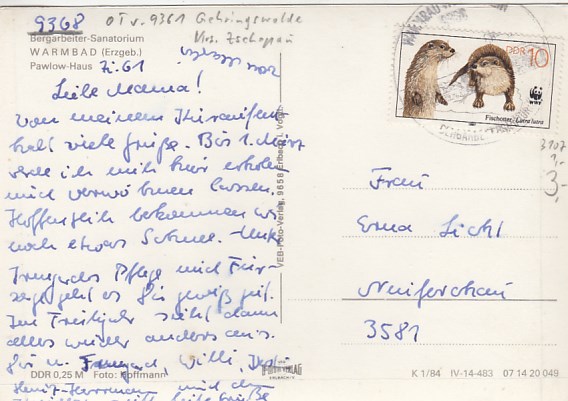 9368
OT v. 9361 Gehringswalde
Krs. Zschopau
Bergarbeiter-Sanatorium
WARMBAD (Erzgeb.)
Pawlow-Haus Zi. 61
Liebe Mama!
Von meinem
viele Grüße. Bis 1. März
werde ich mich hier erholen
und verwöhnen lassen.
Hoffentlich bekommen wir
noch etwas Schnee. Unter
Irmgards Pflege und Für-
sorge geht es Dir gewiß gut.
Im Frühjahr sieht dann
alles wieder anders aus.
Dir u. Irmgard, Willi,
und
DDR 0,25 M Foto: Hoffmann
VEB-Foto-Verlag, 9658 Erlbach i. Vogtl.
DDR 10
WWF
Fischotter/Lutra lutra
3107
3,-
3,-
Frau
Erna Lickl
Neuferchau
3581
K 1/84 IV-14-483 07 14 20 049